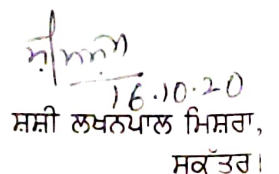 16.10.20
ਸ਼ਸ਼ੀ ਲਖਨਪਾਲ ਮਿਸ਼ਰਾ,
ਸਕੱਤਰ।